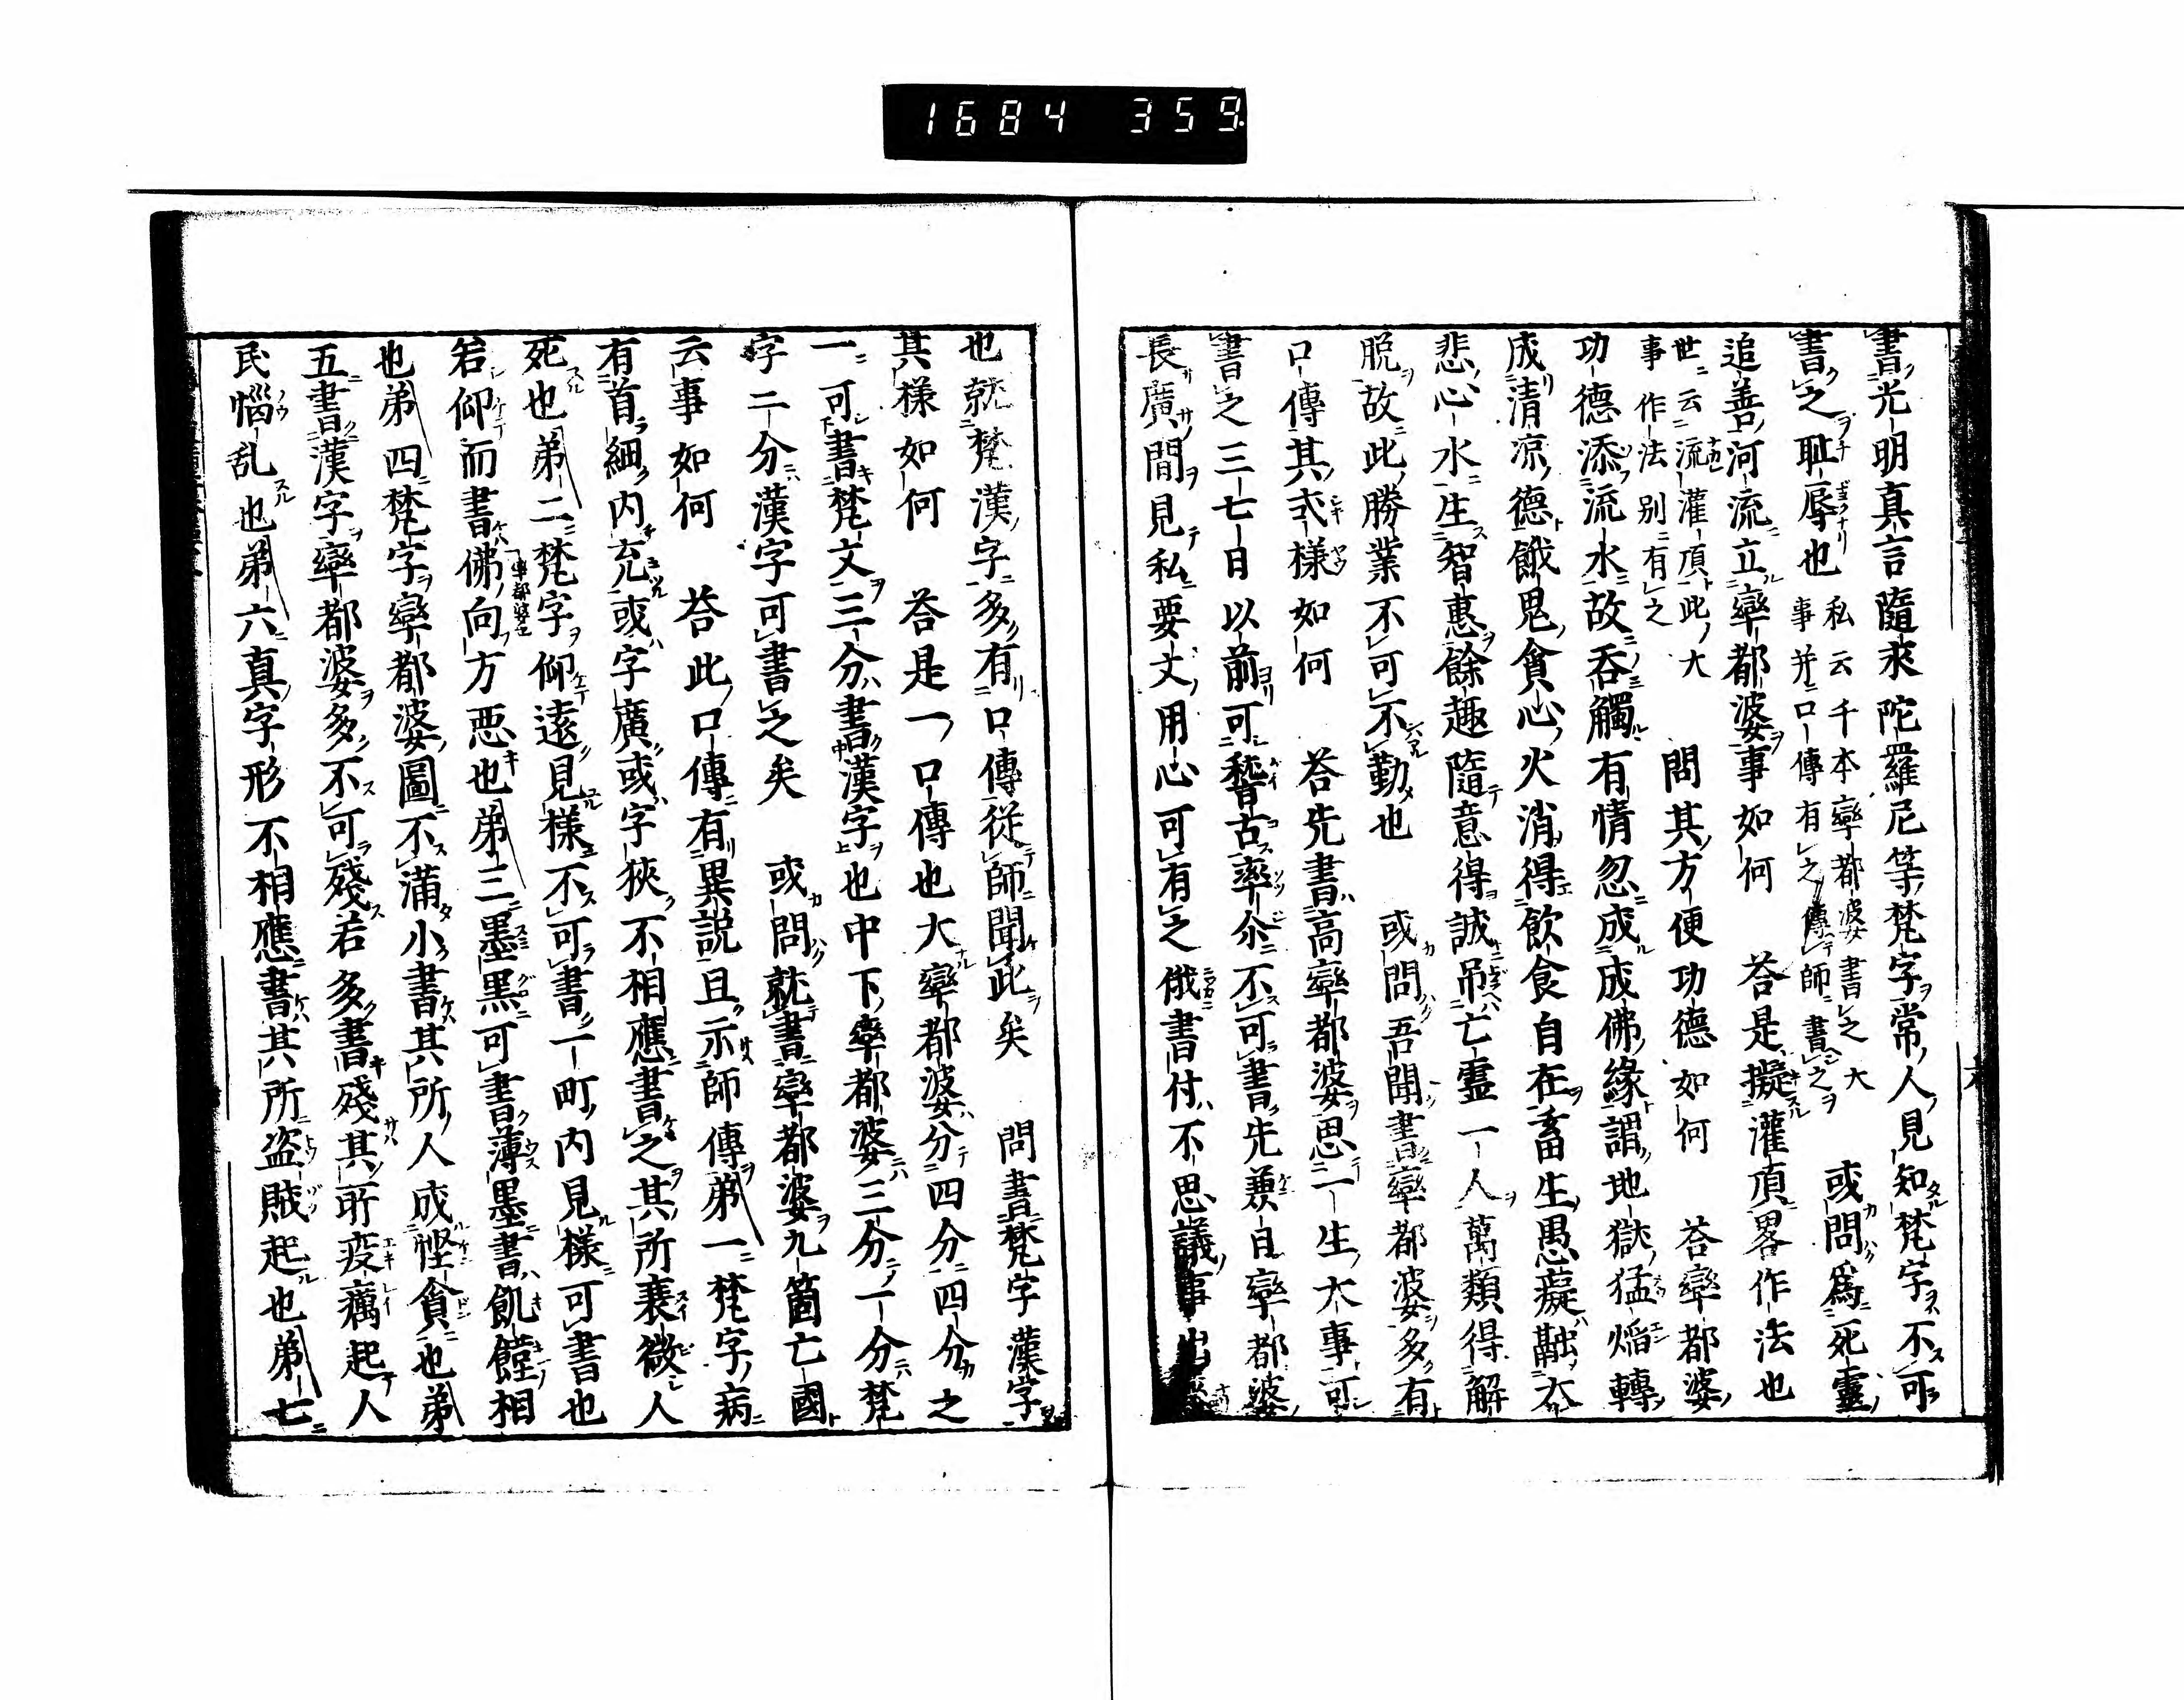 1684 359
書光明真言隨求陀羅尼等梵字常人見知梵字不可
書之耻辱也 私云千本卒都婆書之大
事并口傳有之傳師書之 或問為死靈
追善河流立卒都婆事如何 答是擬灌頂畧作法也
世云流灌頂此大
事作法別有之 問其方便功德如何 答卒都婆
功德添流水故吞觸有情忽成成佛緣謂地獄猛焔轉
成清凉德餓鬼貪心火消得飲食自在畜生愚癡
悲心水生智惠餘趣隨意得誠吊亡靈一人萬類得解
脱故此勝業不可不勤也 或問吾聞書卒都婆多有
口傳其式樣如何 答先書高卒都婆思一生大事可
書之三七日以前可稽古率尒不可書先兼自卒都婆
長廣間見私要文用心可有之俄書付不思議事出
也就梵漢字多有口傳從師聞此矣 問書梵字漢字
其樣如何 答是一口傳也大卒都婆分四分四分之
一可書梵文三分書漢字也中下率都婆三分一分梵
字二分漢字可書之矣 或問就書卒都婆九箇亡國
云事如何 答此口傳有異説且示師傳第一梵字病
有首細内充或字廣或字狹不相應書之其所衰微人
死也第二梵字仰遠見樣不可書一町内見樣可書也
若仰而書佛向方悪也第三墨黒可書薄墨書飢饉相
也第四梵字卒都婆圖不滿小書其所人成慳貪也第
五書漢字卒都婆多不可殘若多書殘其所疫癘起人
民惱乱也第六真字形不相應書其所盗賊起也第七